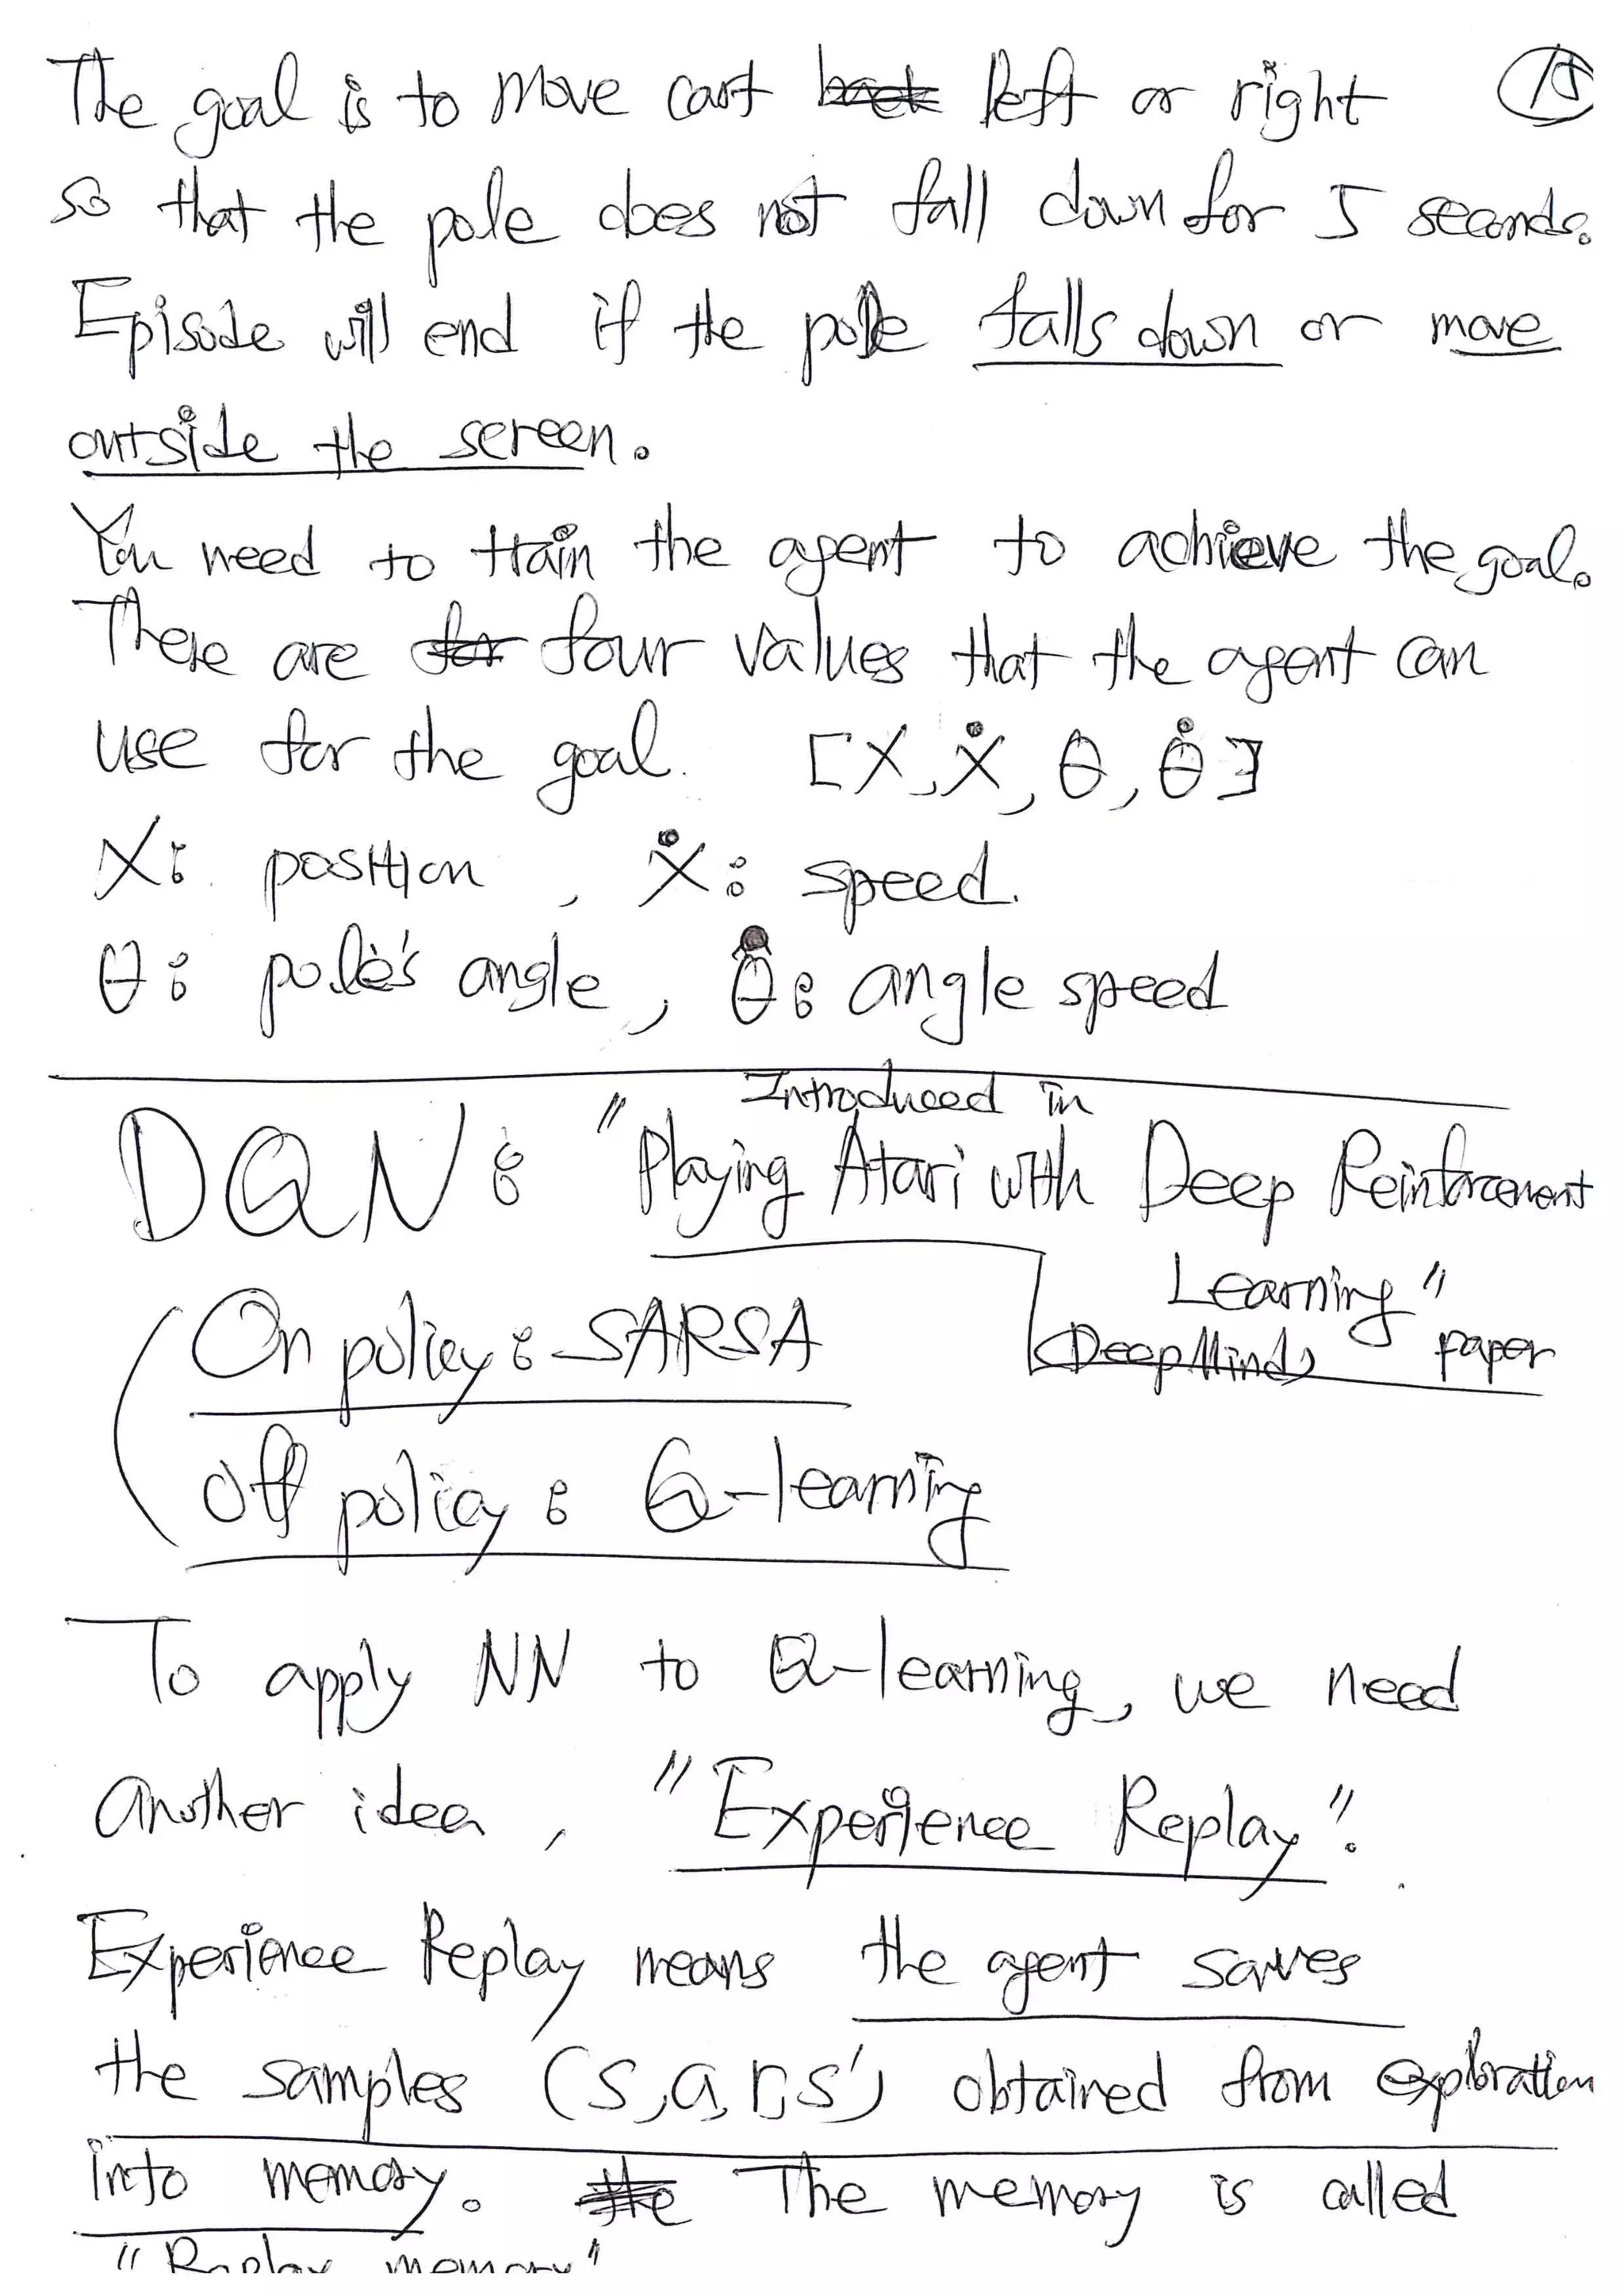 The goal is to move cart back left or right 15
so that the pole does not fall down for 5 seconds.
Episode will end if the pole falls down or move
outside the screen.
You need to train the agent to achieve the goal.
There are for four values that the agent can
use for the goal. [X, Ẋ, θ, θ̇]
X: position, Ẋ: speed.
θ: pole's angle, θ̇: angle speed
Introduced in
DQN: "Playing Atari with Deep Reinforcement
Learning" paper
DeepMind
On policy: SARSA
Off policy: Q-learning
To apply NN to Q-learning, we need
another idea, "Experience Replay".
Experience Replay means the agent saves
the samples (s, a, r, s') obtained from exploration
into memory. the The memory is called
"Replay memory"